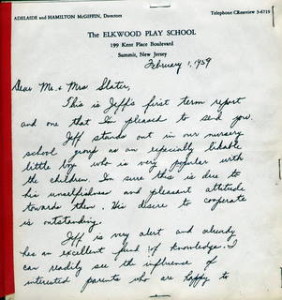 ADELAIDE and HAMILTON McGIFFIN, Directors
Telephone CRestview 3-0710
The ELKWOOD PLAY SCHOOL
199 Kent Place Boulevard
Summit, New Jersey
February 1, 1959
Dear Mr. & Mrs. Slater,
This is Jeff's first term report
and one that I'm pleased to send you.
Jeff stands out in our nursery
school group as an especially likable
little boy who is very popular with
the children. I'm sure this is due to
his unselfishness and pleasant attitude
towards them. His desire to cooperate
is outstanding.
Jeff is very alert and already
has an excellent fund of knowledge. I
can readily see the influence of
interested parents who are happy to